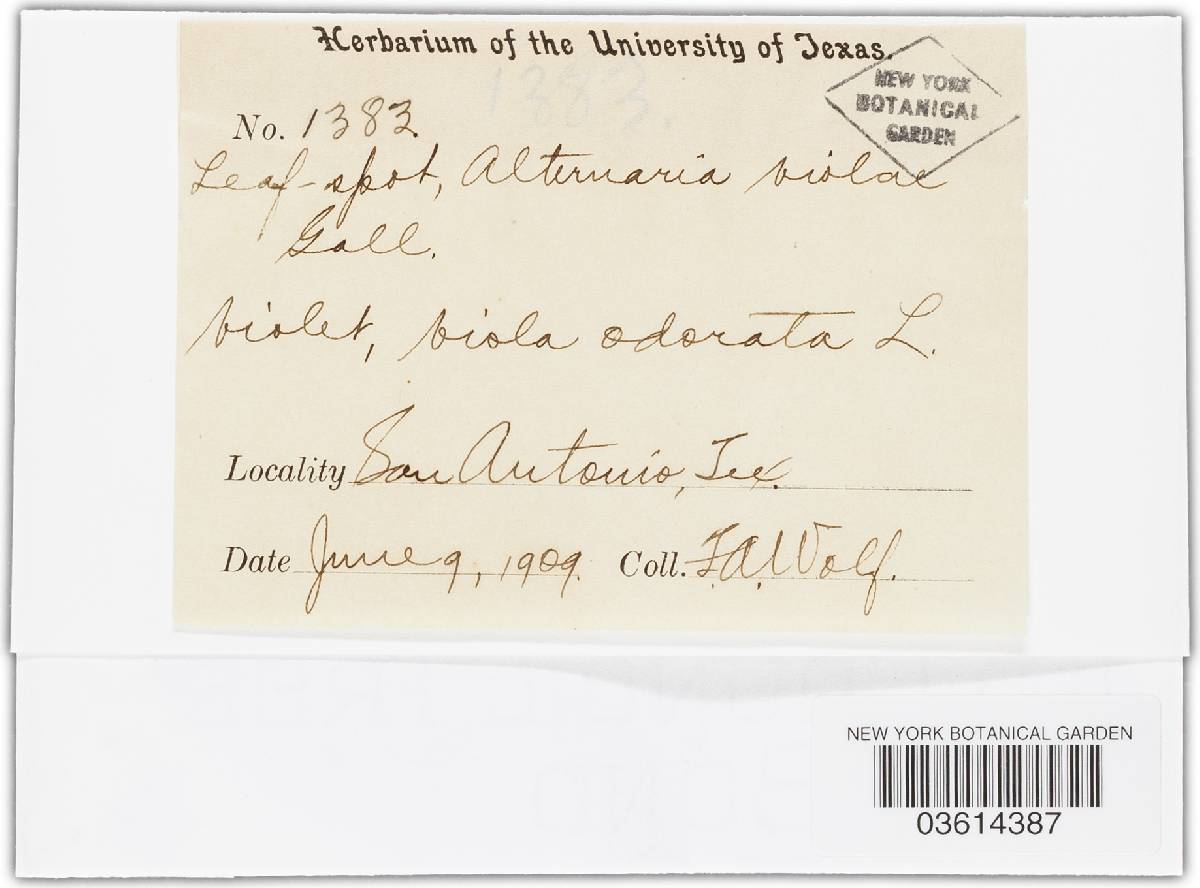 Herbarium of the University of Texas.
NEW YORK
BOTANICAL
GARDEN
1383.
No. 1383
Leaf-spot, Alternaria violae
Gall.
Violet, Viola odorata L.
Locality San Antonio, Tex.
Date June 9, 1909. Coll. F.A. Wolf.
NEW YORK BOTANICAL GARDEN
03614387